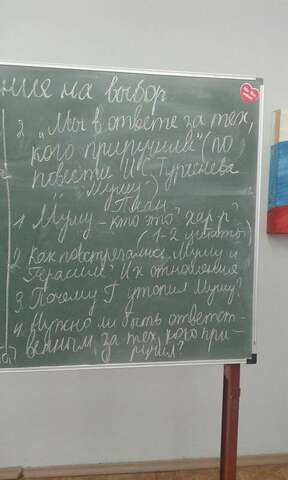 ния на выбор
2. „Мы в ответе за тех,
кого приручили" (по
повести И.С. Тургенева
„Муму")
План
1. Муму – кто это? хар-р?
(1-2 цитаты)
2. Как повстречались Муму и
Герасим? Их отношения
3. Почему Г. утопил Муму?
4. Нужно ли быть ответст-
венным за тех, кого при-
ручил?